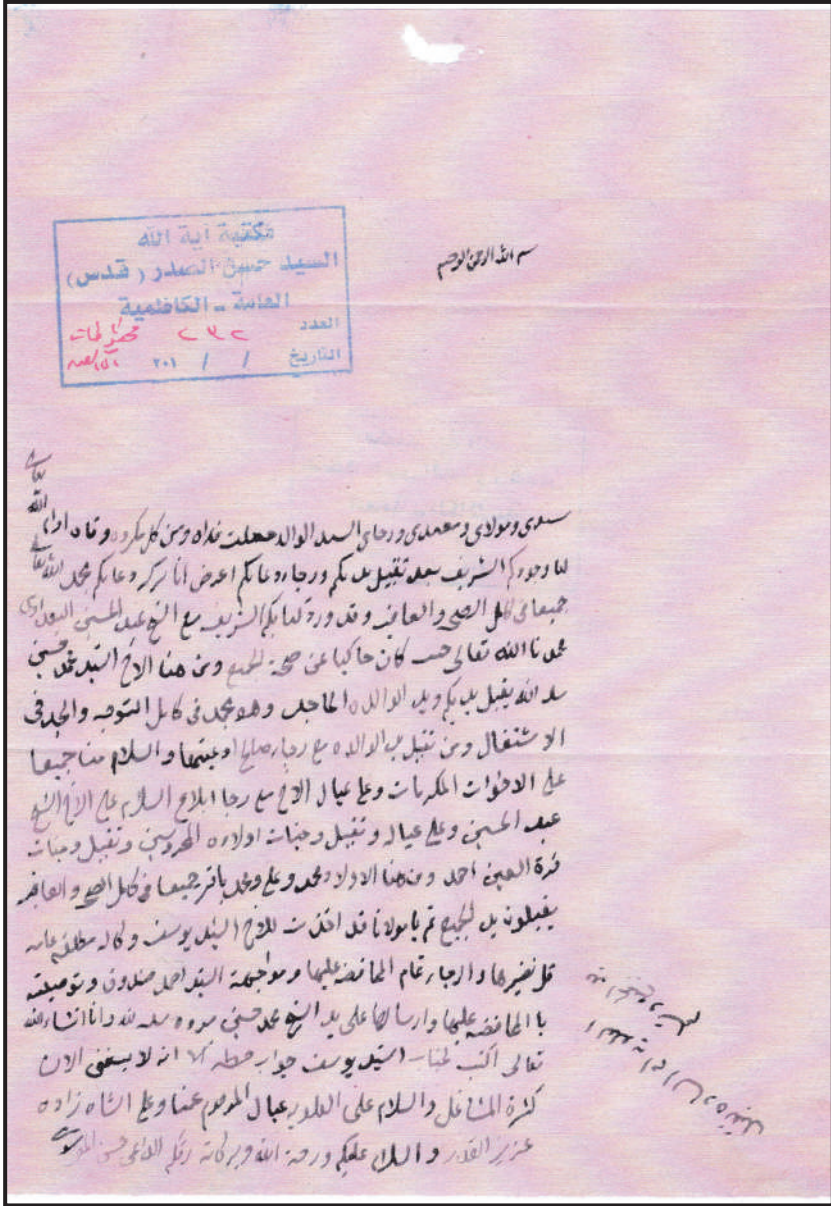 بسم الله الرحمن الرحيم
مكتبة آية الله
السيد حسن الصدر (قدس)
العامة - الكاظمية
العدد ٢٣٢
التاريخ / / ٢٠١
سيدي ومولاي ومعتمدي ورجاي السيد الوالد جعلت فداه ومن كل مكروه وقاه ادام الله تعالى
لنا وجودكم الشريف بعد تقبيل يديكم ورجاء دعائكم اعرض انا ببركة دعائكم بحمد الله تعالى
جميعا في كمال الصحه والعافيه وقد ورد كتابكم الشريف مع الشيخ عبد الحسين البغدادي
حمدنا الله تعالى حيث كان حاكيا عن صحة الجميع ومن هنا الاخ السيد محمد حسين
سلمه الله يقبل يديكم ويد الوالده الماجده وهو بحمد في كمال التوجه والجد في
الاشتغال ومن تقبيل يد الوالده مع رجاء صالح ادعيتها والسلام منا جميعا
على الاخوات المكرمات وعلى عيال الاخ مع رجا ابلاغ السلام على الاخ الشيخ
عبد الحسين وعلى عياله وتقبيل وجنات اولاده المحروسين وتقبيل وجنات
قرة العين احمد ومن هنا الاولاد محمد وعلي ومحمد باقر جميعا في كمال الصحه والعافيه
يقبلون يد الجميع ثم يا مولانا قد اخذت للاخ السيد يوسف وكاله مطلقه عامه
قل نضيرها وارجا تمام المحافضه عليها ومواجهة السيد احمد وتوصيته
با المحافضه عليها وارسالها على يد الشيخ محمد حسين سلمه الله وانا انشاء الله
تعالى اكتب لجناب السيد يوسف جواب خطه الا انه لا يسعني الان
كثرة المشاغل والسلام على العلويه عيال المرحوم عمنا وعلى الشاه زاده
عزيز القدر والسلام عليكم ورحمة الله وبركاته رقكم الداعي حسن